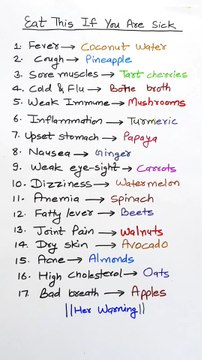 Eat This If You Are Sick
1. Fever → Coconut Water
2. Cough → Pineapple
3. Sore muscles → Tart cherries
4. Cold & Flu → Bone broth
5. Weak Immune → Mushrooms
6. Inflammation → Turmeric
7. Upset stomach → Papaya
8. Nausea → Ginger
9. Weak eye-sight → Carrots
10. Dizziness → Watermelon
11. Anemia → Spinach
12. Fatty lever → Beets
13. Joint Pain → Walnuts
14. Dry skin → Avocado
15. Acne → Almonds
16. High cholesterol → Oats
17. Bad breath → Apples
||Her Warning||